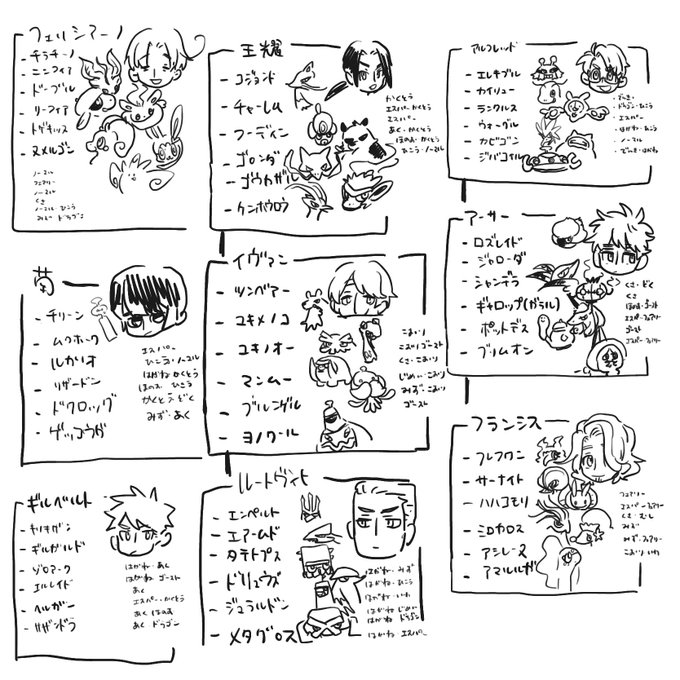 フェリシアーノ
- チラチーノ
- ニンフィア
- ドーブル
- リーフィア
- トゲキッス
- ヌメルゴン
ノーマル
フェアリー
ノーマル
くさ
ノーマル ひこう
ドラゴン
王耀
- コジョンド
- チャーレム
- フーディン
- ゴロンダ
- ゴウカザル
- ケンホロウ
かくとう
エスパー かくとう
エスパー
あく・かくとう
ほのお・かくとう
ひこう・ノーマル
アルフレッド
- エレキブル
- カイリュー
- ランクルス
- ウォーグル
- カビゴン
- ジバコイル
・でんき・
・ドラゴン・ひこう
・エスパー
・はがね・ひこう
・ノーマル
・でんき・はがね
菊
- チリーン
- ムクホーク
- ルカリオ
- リザードン
- ドクロッグ
- ゲッコウガ
エスパー
ひこう・ノーマル
はがね かくとう
ほのお ひこう
かくとう どく
みず・あく
イヴァン
- ツンベアー
- ユキメノコ
- ユキノオー
- マンムー
- ブルンゲル
- ヨノワール
こおり
こおり ゴースト
くさ・こおり
じめん・こおり
みず・
ゴースト
アーサー
- ロズレイド
- ジャローダ
- シャンデラ
- ギャロップ(ガラル)
- ポットデス
- ブリムオン
くさ・どく
くさ
ほのお・ゴースト
エスパー・フェアリー
ゴースト
エスパー・フェアリー
ギルベルト
- ギルガルド
- ゾロアーク
- エルレイド
- ヘルガー
- サザンドラ
はがね・あく
はがね ゴースト
あく
エスパー・かくとう
あく ほのお
あく ドラゴン
ルートヴィヒ
- エンペルト
- エアームド
- タテトプス
- ドリュウズ
- ジュラルドン
- メタグロス
はがね・みず
はがね・ひこう
はがね・いわ
はがね じめん
はがね ドラゴン
はがね エスパー
フランシス
- フレフワン
- サーナイト
- ハハコモリ
- ミロカロス
- アシレーヌ
- アマルルガ
フェアリー
エスパー・フェアリー
くさ・むし
みず
みず・フェアリー
こおり いわ